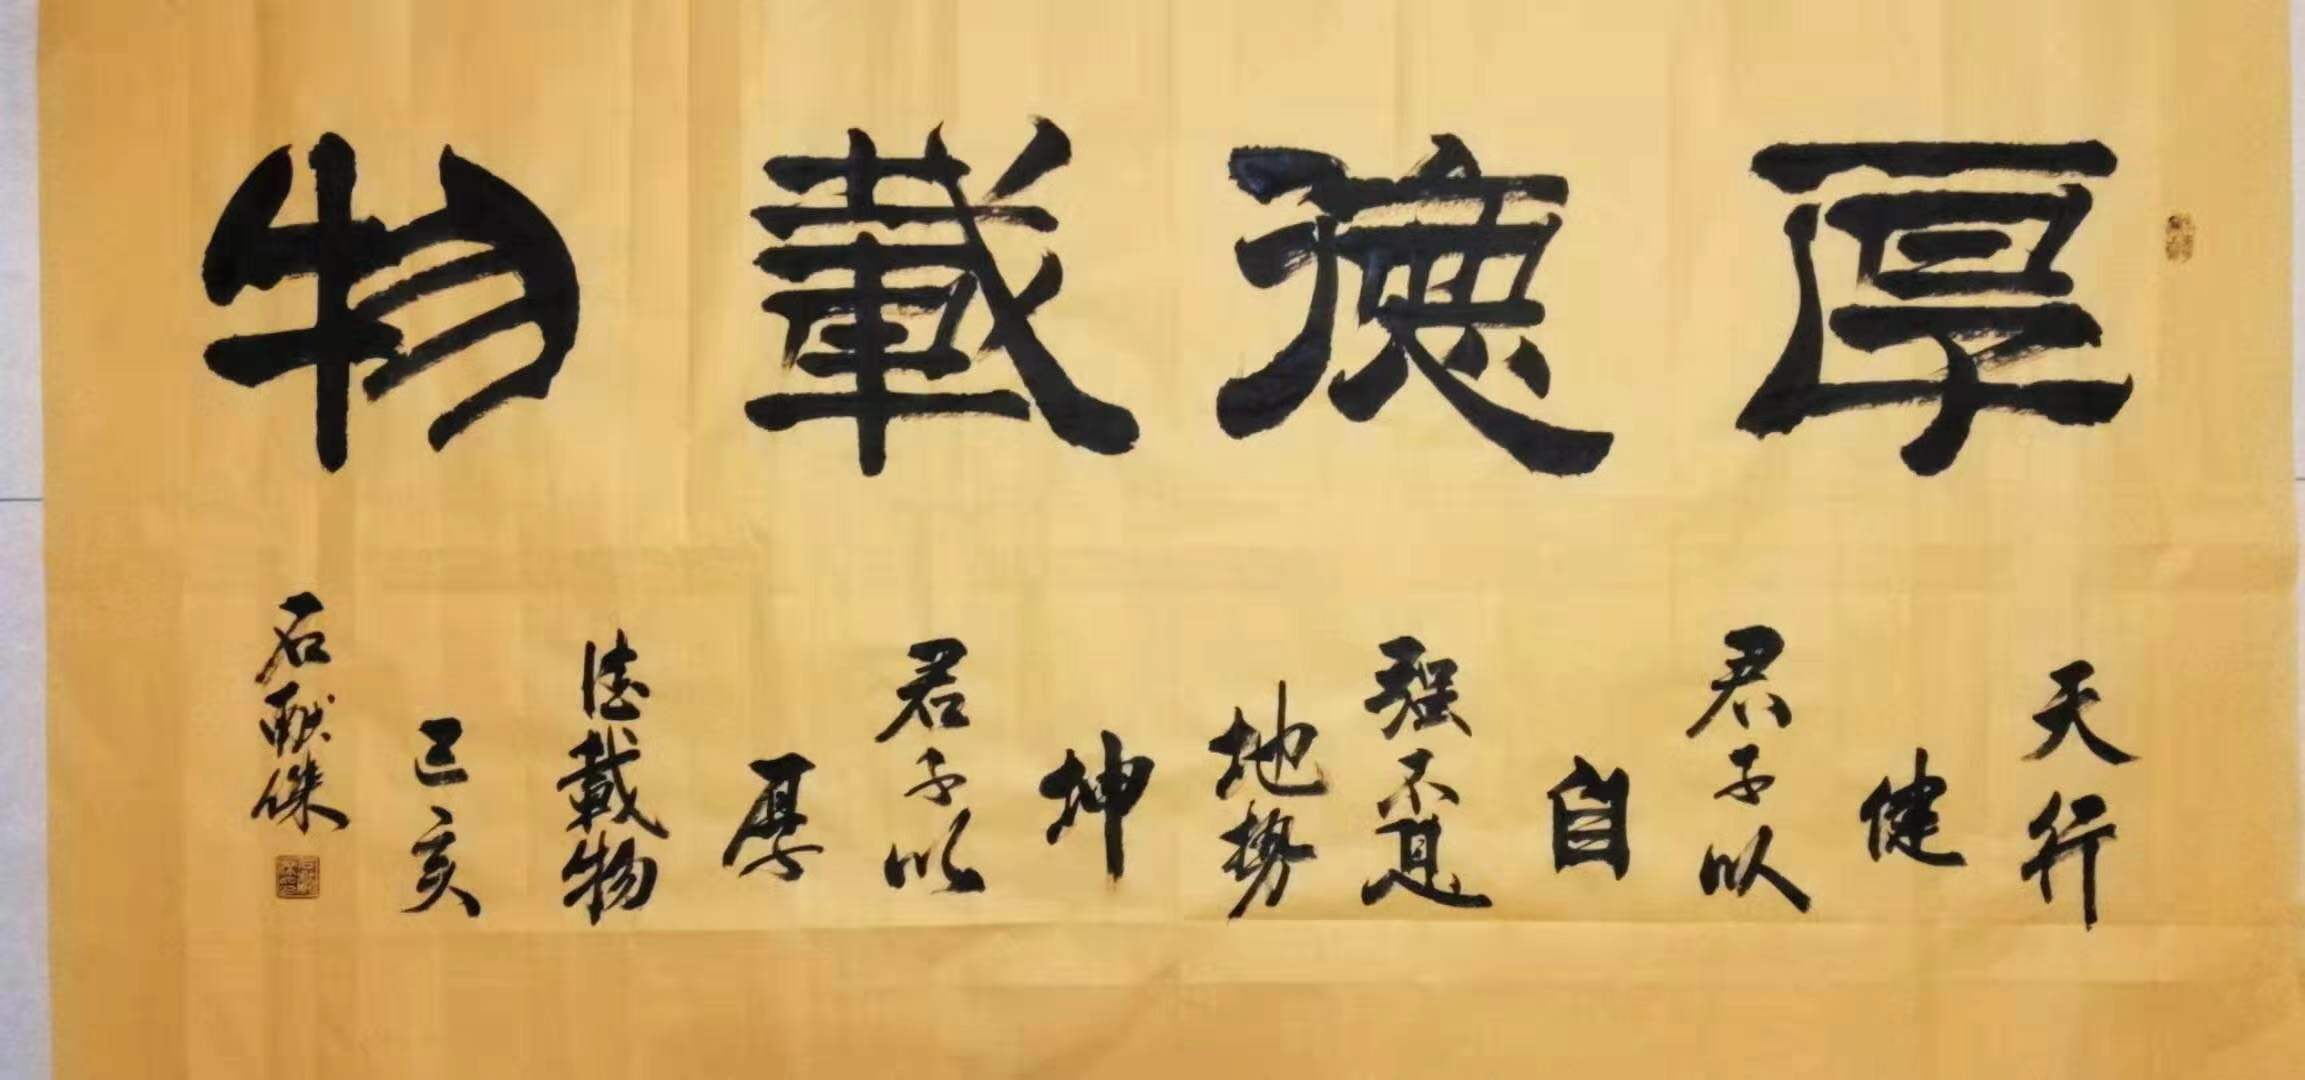 厚德載物
天行
健
君子以
自
強不息
地勢
坤
君子以
厚
德載物
己亥
石献